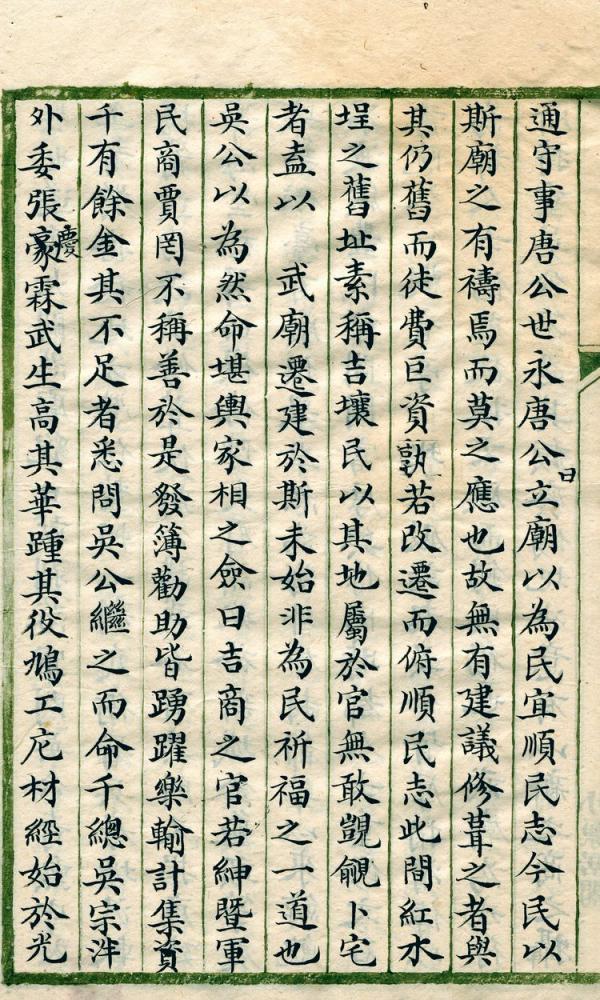 通守事唐公世永唐公曰立廟以為民宜順民志今民以
斯廟之有禱焉而莫之應也故無有建議修葺之者與
其仍舊而徒費巨資孰若改遷而俯順民志此間紅水
埕之舊址素稱吉壤民以其地屬於官無敢覬覦卜宅
者盍以　武廟遷建於斯未始非為民祈福之一道也
吳公以為然命堪輿家相之僉曰吉商之官若紳暨軍
民商賈罔不稱善於是發簿勸助皆踴躍樂輸計集資
千有餘金其不足者悉問吳公繼之而命千總吳宗泮
外委張慶豪霖武生高其華踵其役鳩工庀材經始於光